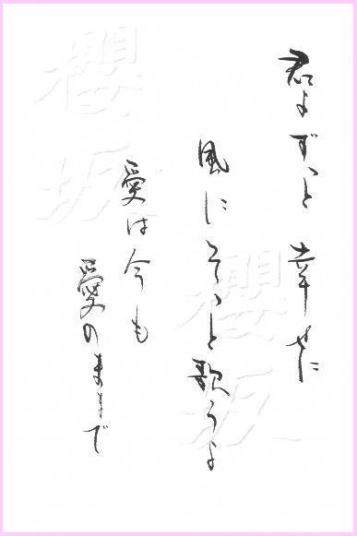 君よずっと 幸せに
風にそっと歌うよ
愛は今も
愛のままで
櫻坂
櫻坂